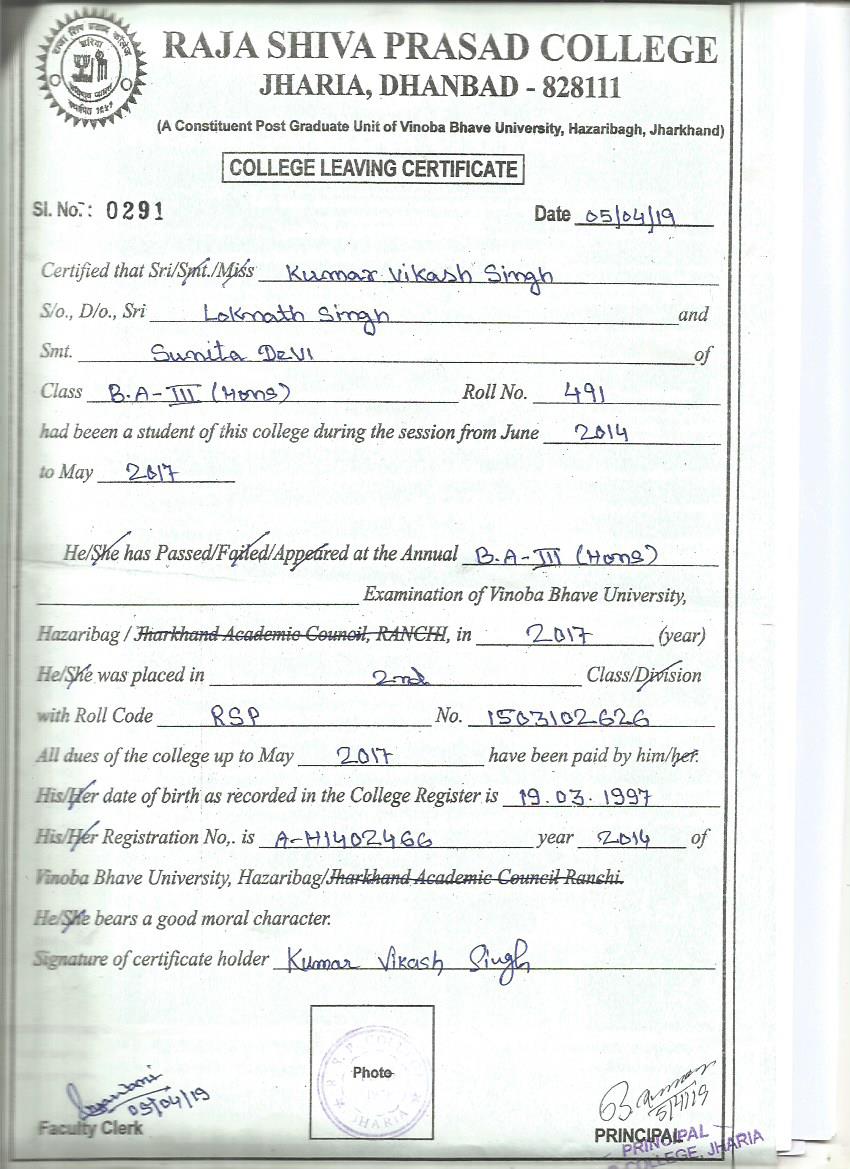 RAJA SHIVA PRASAD COLLEGE
JHARIA, DHANBAD - 828111
(A Constituent Post Graduate Unit of Vinoba Bhave University, Hazaribagh, Jharkhand)
COLLEGE LEAVING CERTIFICATE
Sl. No.: 0291 Date 05/04/19
Certified that Sri/Smt./Miss Kumar Vikash Singh
S/o., D/o., Sri Loknath Singh and
Smt. Sunita Devi of
Class B.A-III (Hons) Roll No. 491
had beeen a student of this college during the session from June 2014
to May 2017
He/She has Passed/Failed/Appeared at the Annual B.A-III (Hons)
Examination of Vinoba Bhave University,
Hazaribag / Jharkhand Academic Council, RANCHI, in 2017 (year)
He/She was placed in 2nd Class/Division
with Roll Code RSP No. 1503102626
All dues of the college up to May 2017 have been paid by him/her.
His/Her date of birth as recorded in the College Register is 19.03.1997
His/Her Registration No,. is A-H1402466 year 2014 of
Vinoba Bhave University, Hazaribag/Jharkhand Academic Council Ranchi.
He/She bears a good moral character.
Signature of certificate holder Kumar Vikash Singh
Photo
JHARIA
05/04/19 5/4/19
Faculty Clerk PRINCIPAL
PRINCIPAL
COLLEGE, JHARIA